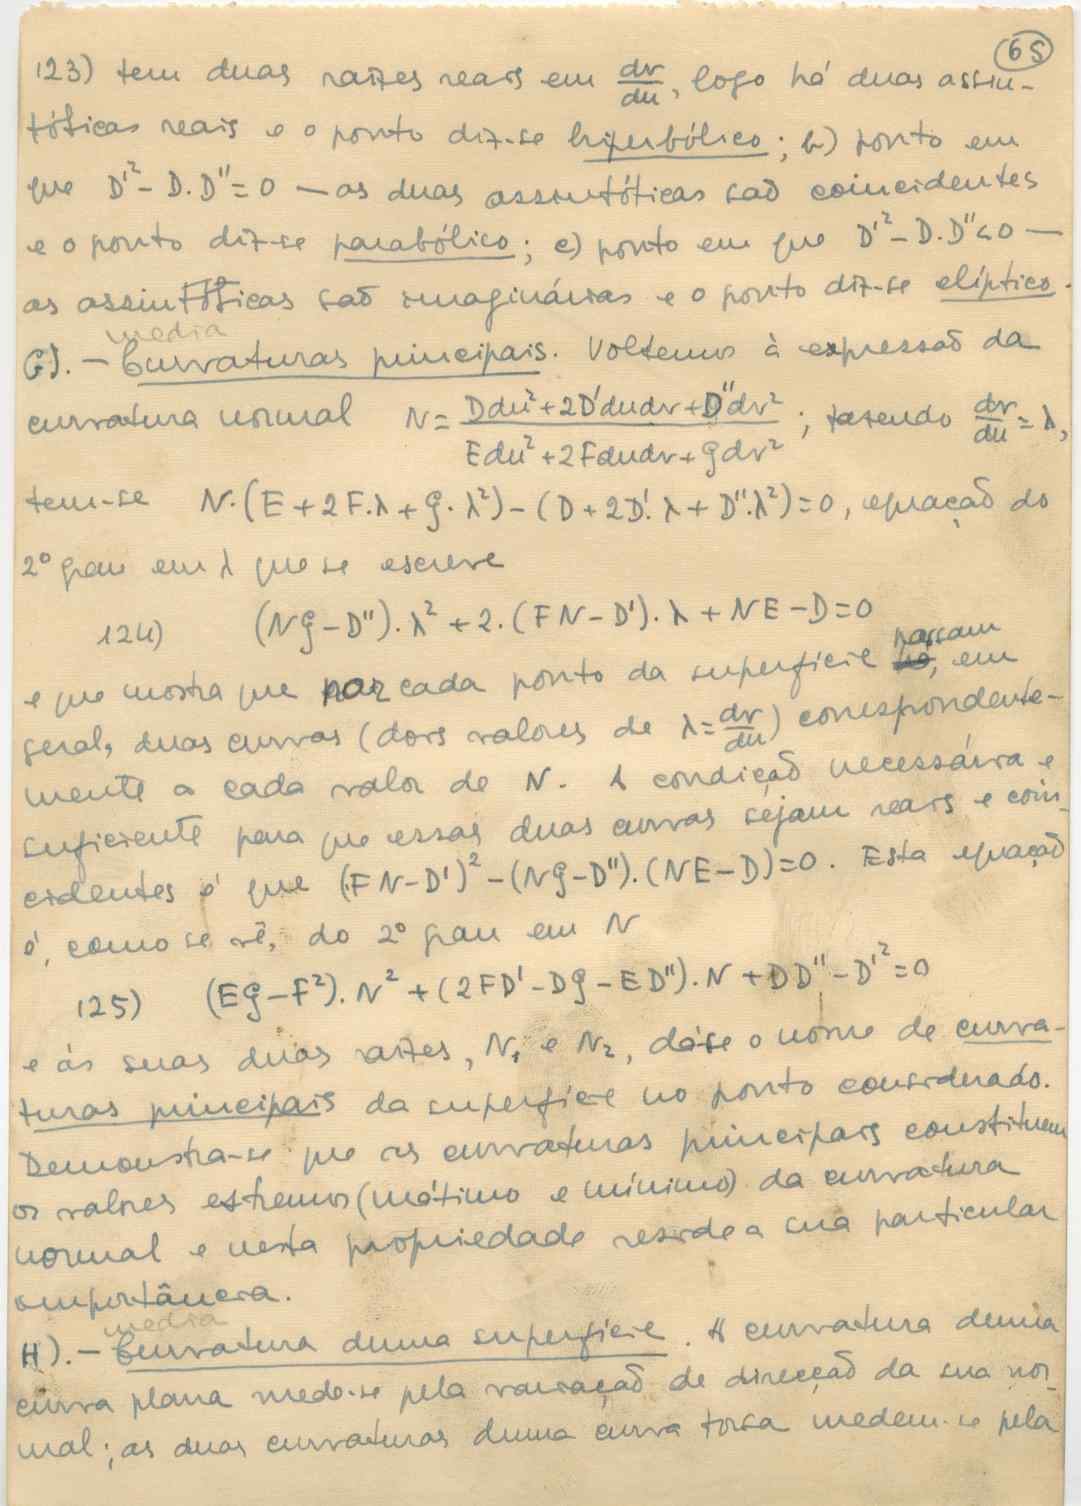 65
123) tem duas raízes reais em dv/du, logo há duas assin-
tóticas reais e o ponto diz-se hiperbólico; b) ponto em
que D'² - D.D'' = 0 — as duas assintóticas saõ coincidentes
e o ponto diz-se parabólico; c) ponto em que D'² - D.D'' < 0 —
as assintóticas saõ imaginárias e o ponto diz-se elíptico.
media
G). — Curvaturas principais. Voltemos à expressaõ da
curvatura normal N = (Ddu² + 2D'dudv + D''dv²)/(Edu² + 2Fdudv + Gdv²); fazendo dv/du = λ,
tem-se N.(E + 2F.λ + G.λ²) - (D + 2D'.λ + D''.λ²) = 0, equaçaõ do
2º grau em λ que se escreve
124) (NG - D'').λ² + 2.(FN - D').λ + NE - D = 0
passam
e que mostra que por cada ponto da superfície, em
geral, duas curvas (dois valores de λ = dv/du) correspondente-
mente a cada valor de N. A condiçaõ necessária e
suficiente para que essas duas curvas sejam reais e coin-
cidentes é que (FN - D')² - (NG - D'').(NE - D) = 0. Esta equaçaõ
é, como se vê, do 2º grau em N
125) (EG - F²).N² + (2FD' - DG - ED'').N + DD'' - D'² = 0
e ás suas duas raízes, N₁ e N₂, dá-se o nome de curva-
turas principais da superfície no ponto considerado.
Demonstra-se que as curvaturas principais constituem
os valores estremos (máximo e mínimo) da curvatura
normal e nesta propriedade reside a sua particular
importância.
media
H). — Curvatura duma superfície. A curvatura duma
curva plana mede-se pela variaçaõ de direcçaõ da sua nor-
mal; as duas curvaturas duma curva torsa medem-se pela